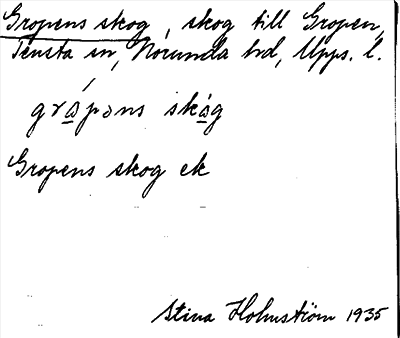 Gropens skog, skog till Gropen,
Tensta sn, Norunda hd, Upps. l.
grápəns skåg
Gropens skog ek
Stina Holmström 1935